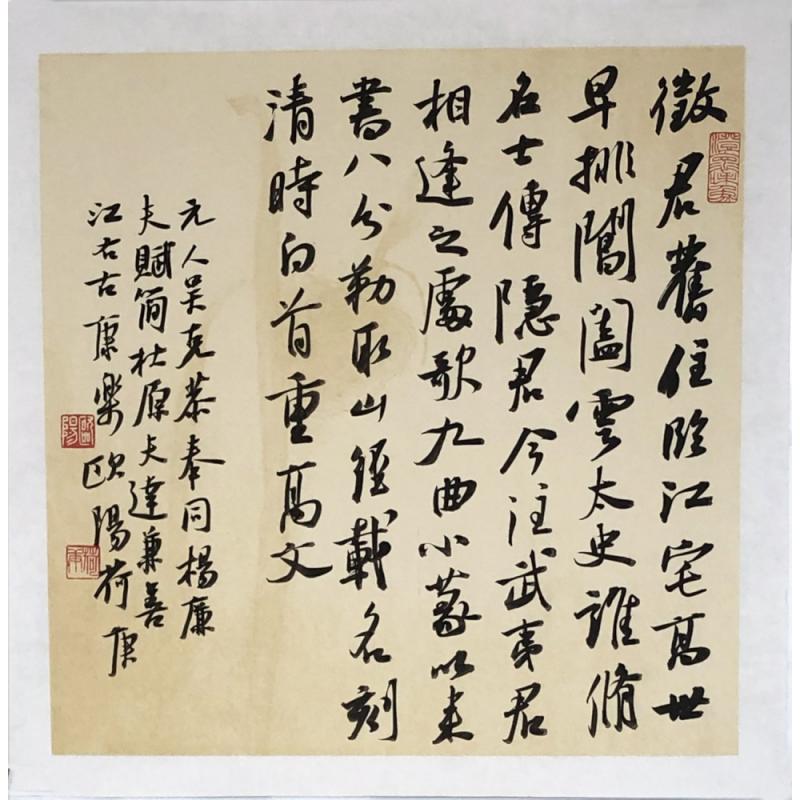 徵君舊住臨江宅高世
早排閶闔雲太史誰脩
名士傳隱君今注武夷君
相逢之處歌九曲小篆以来
書八分勒取山經載名刻
清時白首重高文
元人吴克恭奉同楊廉
夫賦简杜原夫達兼善
江右古康樂欧陽荷庚